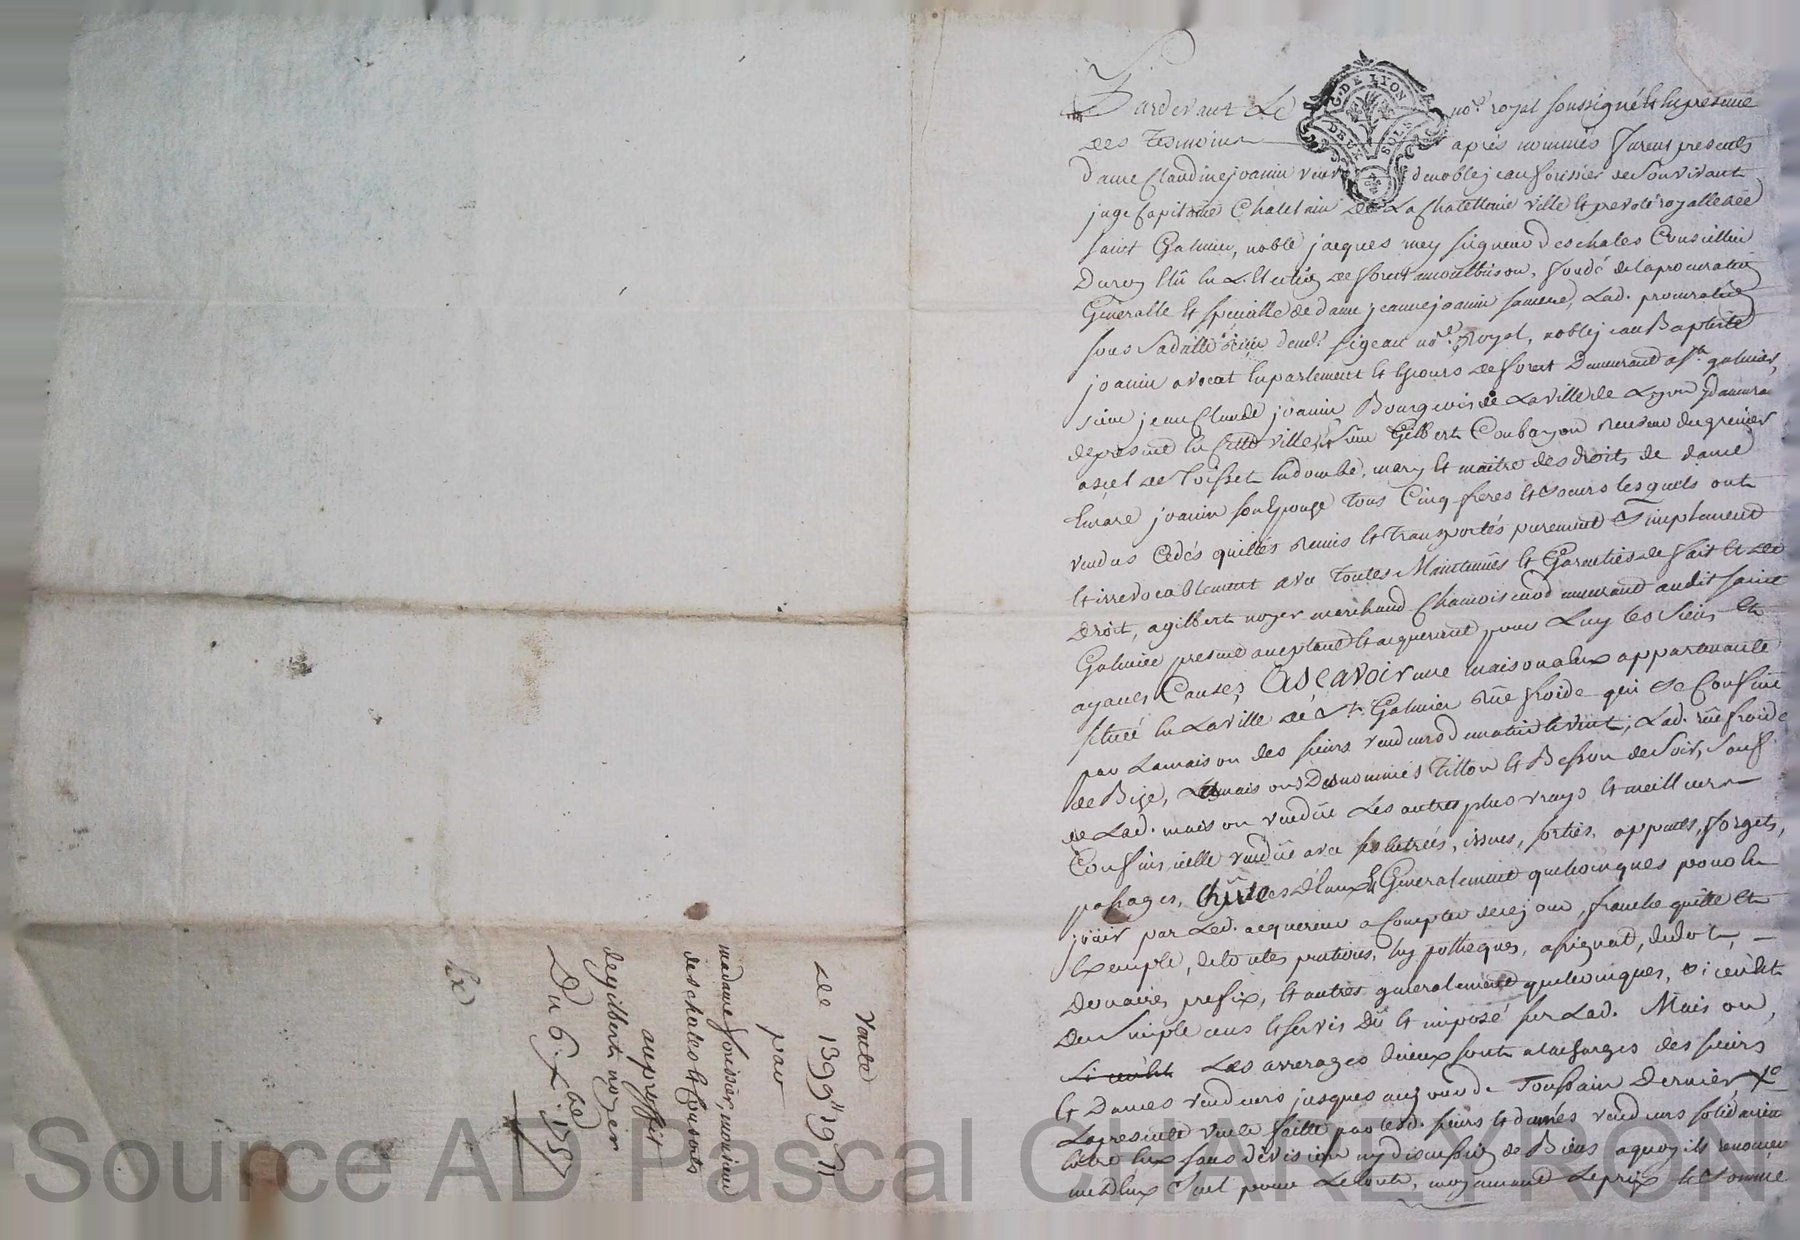 Pardevant Le no.re royal soussigné et en presence
des Tesmoins après nommés furent presents
dame Claudine joanin veuve de noble jean forissier de Souvivant
juge Capitaine Chatelain de La Chatellenie ville et prevoté royalle de
saint Galmier, noble jacques mey seigneur deschales Conseiller
Du roy Elû en L'Election de forest a montbrison, fondé de la procuration
Generalle et speciale de dame jeanne joanin sa mere, Lad. procuration
no.re Royal, noble jean Baptiste
joanin avocat en parlement et Cours de forest Demeurant a s.t galmier,
sieur jean Claude joanin Bourgeois de La ville de Lyon
de present en Cette ville, et sieur Gilbert Coubayon Receveur du grenier
a sel de Toissei en dombe, mary et maitre des droits de dame
joanin son Epouse Tous Cinq freres et soeurs lesquels ont
vendus Cedés quittés remis et transportés purement et simplement
et irrevocablement avec Toutes Maintenües et Garenties de fait et de
Droit, a gilbert noyer marchand Chamoiseur demeurant audit saint
Galmier present acceptant et acquerant pour Luy les siens et
ayants Causes Ascavoir une maison a eux appartenante
située en La ville de S.t Galmier rüe froide qui se Confine
par La maison des sieurs vendeurs de matin et vent, Lad. rüe froide
de Bize, maison Tillon et Besson de soir, sauf
de Lad. maison vendüe Les autres plus vrays et meilleurs
Confins, icelle vendüe avec ses entrées, issues, sorties, appants, forgets,
passages, Chütes d'Eaux et Generalement quelconques pour en
joüir par Led. acquereur a Compter de ce jour, franche quitte et
Exempte, de toutes pentions, hypotheques, assignat, dudot,
Doüaires prefix, et autres generalement quelconques,
Du simple cens et servis Dû et imposé sur Lad. Maison,
Les arrerages d'iceux sont a la charges des sieurs
et Dames vendeurs jusques au jour de Toussain Dernier
La presente vente faitte par lesd. sieurs et dames vendeurs solidairement
entre Eux sans division ny discution de Biens a quoy ils renoncent
C'est pour Le Conte, moyenant Le prix et somme
Vente
de 1399# 19 s
par
madame forissier, monsieur
deschales et Consorts
au proffit
de gilbert noyer
Du 6. x.bre 1757
Ex
G. DE LYON
DEUX SOLS
Source AD Pascal CHAREYRON